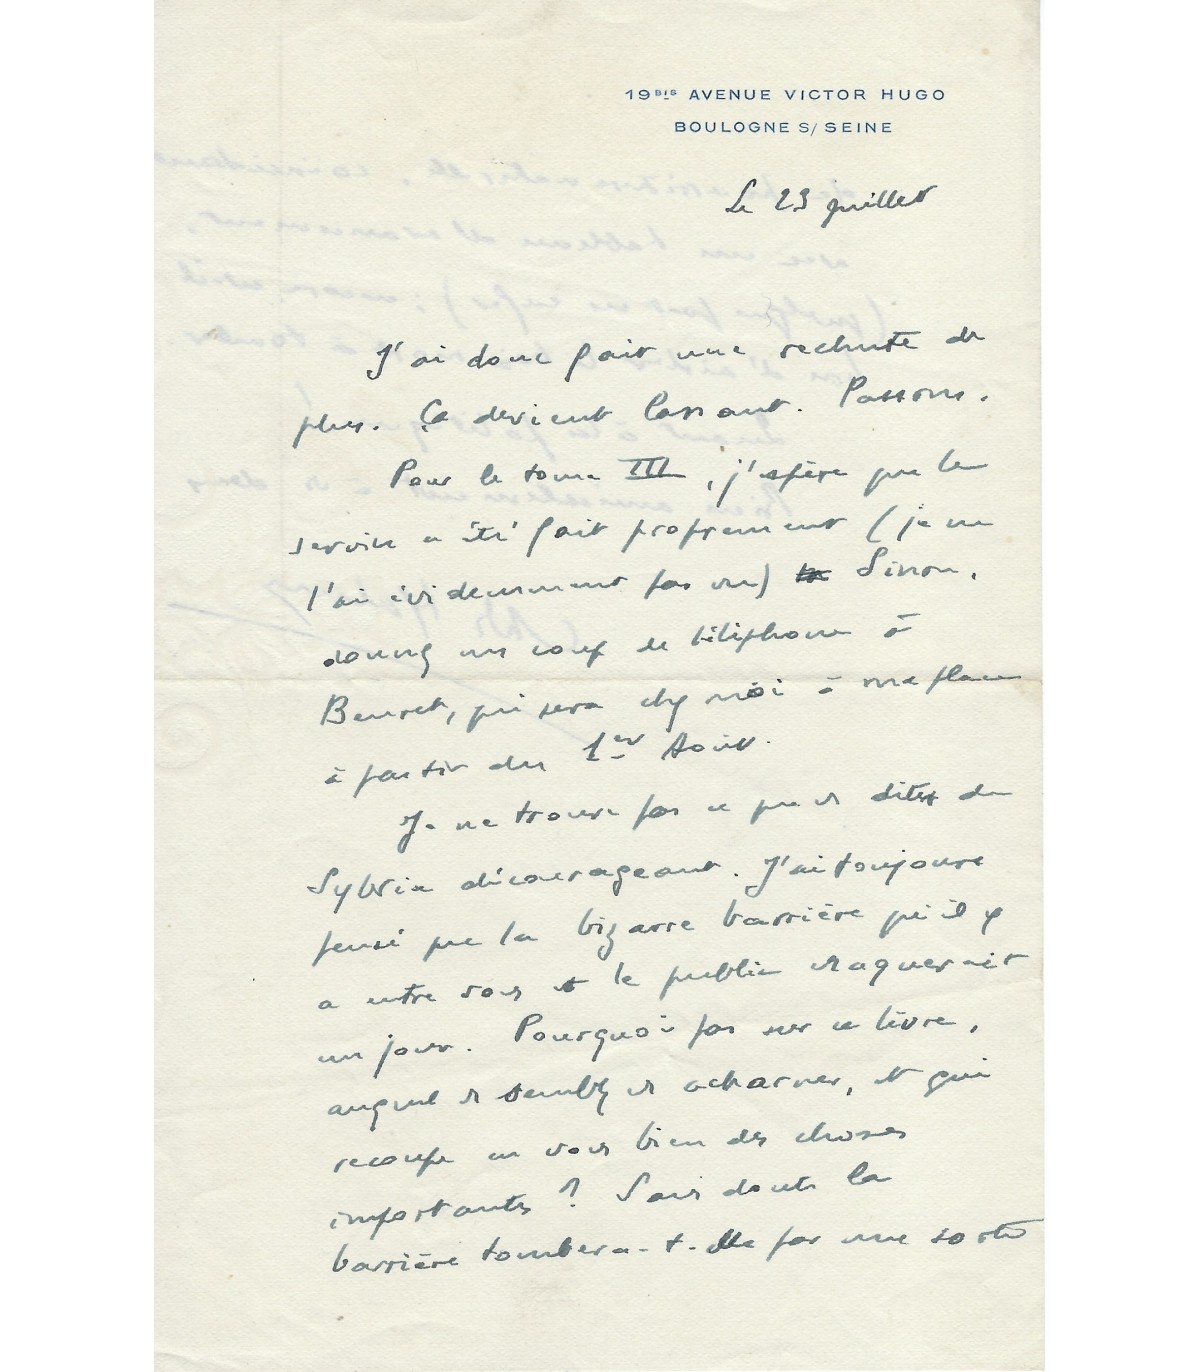 19BIS AVENUE VICTOR HUGO
BOULOGNE S/ SEINE
Le 23 juillet
J'ai donc fait une rechute de
plus. Ça devient lassant. Passons.
Pour le tome III, j'espère que le
service a été fait proprement (je ne
l'ai évidemment pas vu) Sinon,
donnez un coup de téléphone à
Beuret, qui sera chez moi à ma place
à partir du 1er Août.
Je ne trouve pas ce que vs dites de
Sylvia décourageant. J'ai toujours
pensé que la bizarre barrière qu'il y
a entre vous et le public craquerait
un jour. Pourquoi pas sur ce livre,
auquel vs semblez vs acharner, et qui
recoupe en vous bien des choses
importantes ? Sans doute la
barrière tombera-t-elle par une sorte